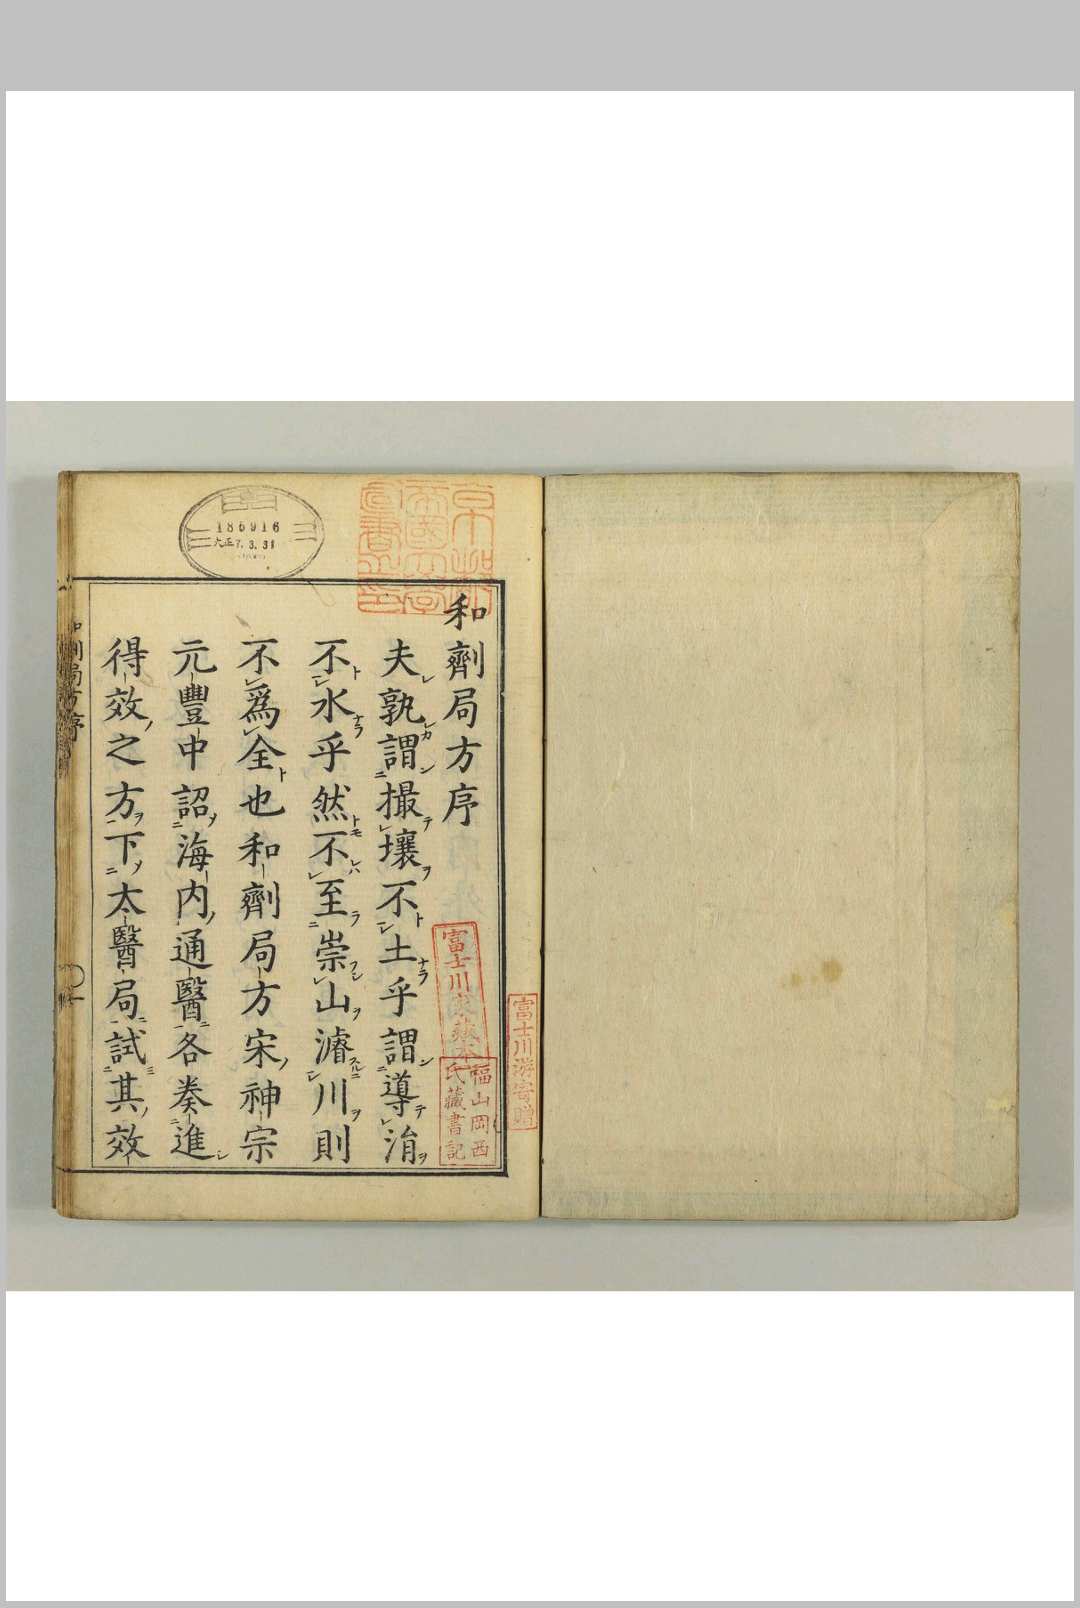 和劑局方序
夫孰謂撮壤不土乎謂導涓
不水乎然不至崇山濬川則
不爲全也和劑局方宋神宗
元豐中詔海内通醫各奏進
得效之方下太醫局試其效
富士川家藏本
福山岡西
氏藏書記
富士川游寄贈
京都
帝國大學
圖書之印
186916
大正7.3.31
和劑局方序